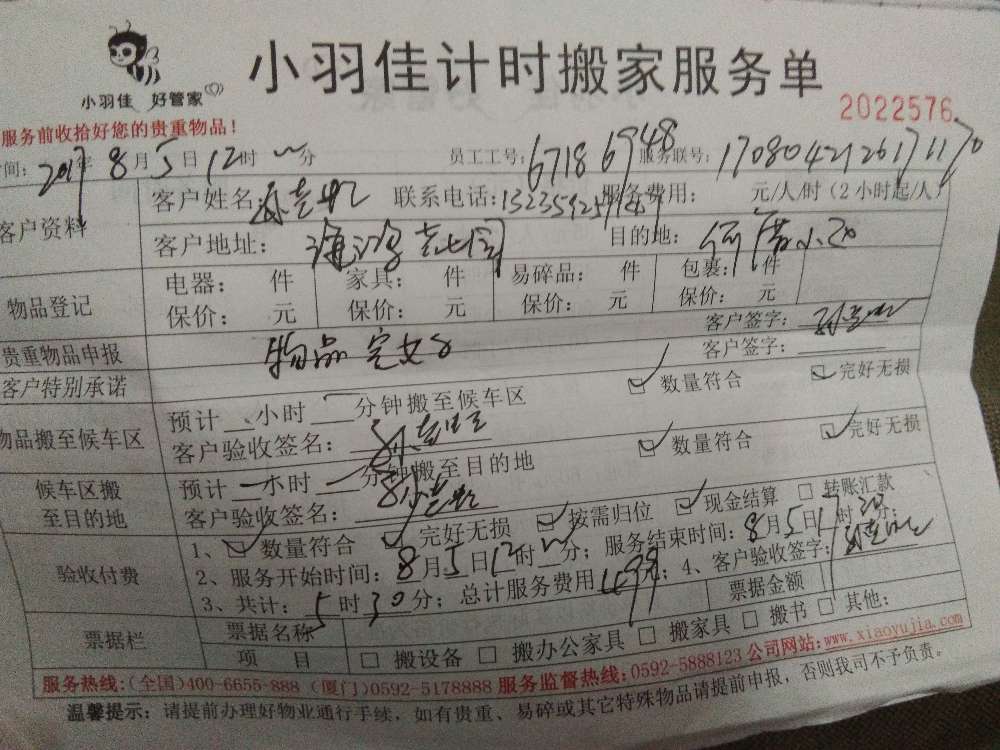 小羽佳 好管家
小羽佳计时搬家服务单
2022576
服务前收拾好您的贵重物品!
间: 2017年8月5日12时 分 员工工号: 6718 6948 服务联号: 1708042126171170
客户资料 客户姓名: 联系电话: 服务费用: 元/人/时(2小时起/人)
客户地址: 目的地: 小区
物品登记 电器: 件 家具: 件 易碎品: 件 包裹: 件
保价: 元 保价: 元 保价: 元 保价: 元
贵重物品申报 物品完好 客户签字:
客户特别承诺 客户签字:
物品搬至候车区 预计 小时 分钟搬至候车区 数量符合 完好无损
客户验收签名:
候车区搬至目的地 预计 小时 分钟搬至目的地 数量符合 完好无损
客户验收签名:
验收付费 1、 数量符合 完好无损 按需归位 现金结算 转账汇款
2、服务开始时间: 8月5日12时 分; 服务结束时间: 8月5日17时30分;
3、共计: 5时30分; 总计服务费用: 元; 4、客户验收签字:
票据栏 票据名称 票据金额
项目 搬设备 搬办公家具 搬家具 搬书 其他:
服务热线:(全国)400-6655-888 (厦门)0592-5178888 服务监督热线:0592-5888123 公司网站:www.xiaoyujia.com
温馨提示: 请提前办理好物业通行手续, 如有贵重、易碎或其它特殊物品请提前申报, 否则我司不予负责。